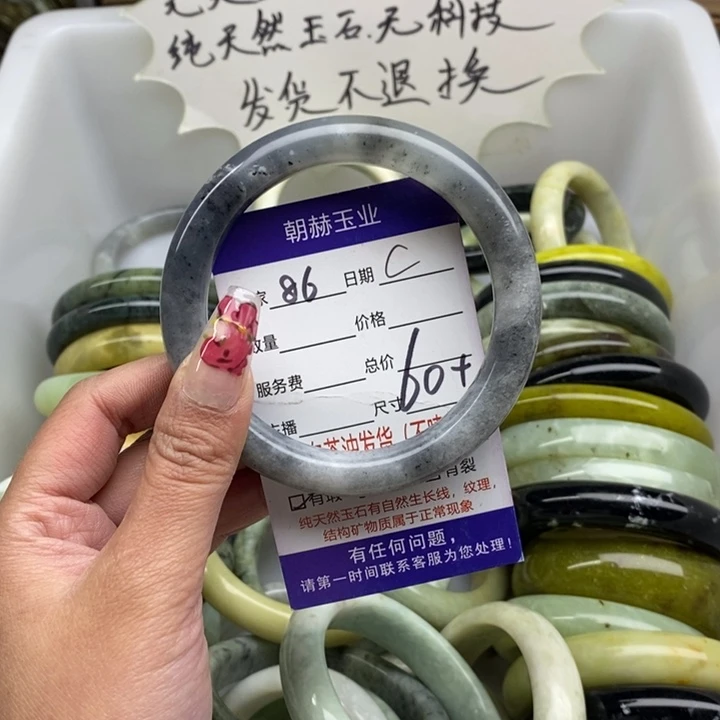 纯天然玉石.无科技
发货不退换
朝赫玉业
家 86 日期 C
数量 价格
服务费 总价
播 尺寸 60+
纯天然玉石有自然生长线，纹理，
结构矿物质属于正常现象
有任何问题，
请第一时间联系客服为您处理！